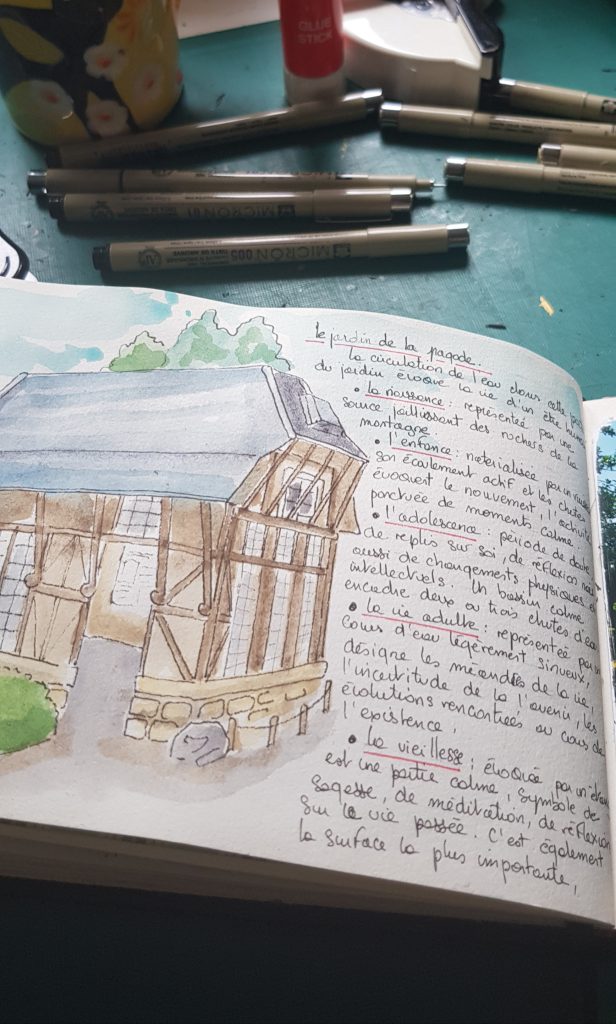 GLUE
STICK
MICRON 01
MICRON 005
le jardin de la pagode.
la circulation de l'eau dans cette
du jardin évoque la vie d'un être humain
• la naissance : représentée par une
source jaillissant des rochers de la
montagne.
• l'enfance : matérialisée par un
son écoulement actif et les chutes
évoquent le mouvement, l'activité
ponctuée de moments calme.
• l'adolescence : période de doute
de replis sur soi, de réflexion mais
aussi de changements physiques et
intellectuels. Un bassin calme
encadre deux ou trois chutes d'eau
• la vie adulte : représentée par
cours d'eau légèrement sinueux,
désigne les méandres de la vie
l'incertitude de l'avenir, les
évolutions rencontrées au cours de
l'existence,
• la vieillesse : évoquée par un
est une partie calme, symbole de
sagesse, de méditation, de réflexion
sur la vie passée. C'est également
la surface la plus importante,